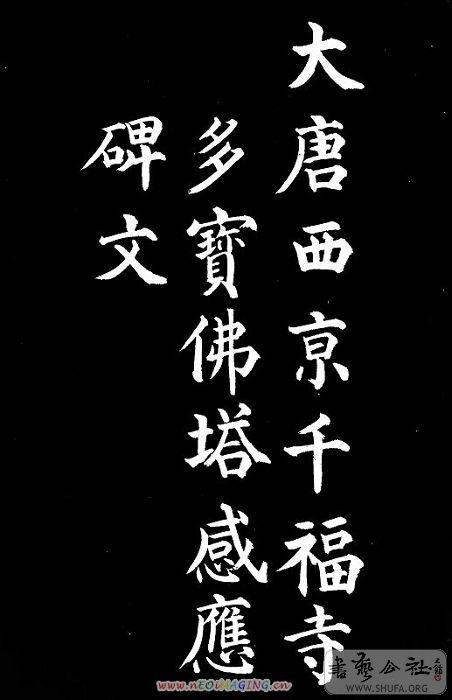 大唐西京千福寺
多寶佛塔感應
碑文
書艺公社
WWW.SHUFA.ORG
www.nEOiMAGING.cn